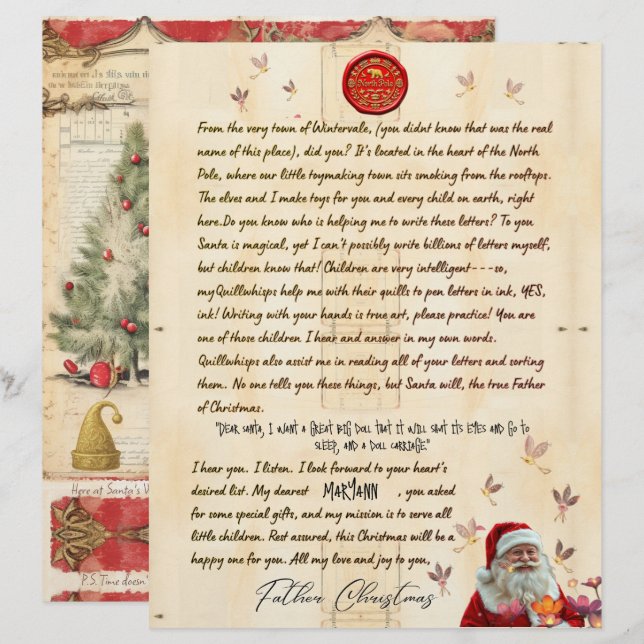 North Pole
From the very town of Wintervale, (you didnt know that was the real
name of this place), did you? It's located in the heart of the North
Pole, where our little toymaking town sits smoking from the rooftops.
The elves and I make toys for you and every child on earth, right
here.Do you know who is helping me to write these letters? To you
Santa is magical, yet I can't possibly write billions of letters myself,
but children know that! Children are very intelligent---so,
myQuillwhisps help me with their quills to pen letters in ink, YES,
ink! Writing with your hands is true art, please practice! You are
one of those children I hear and answer in my own words.
Quillwhisps also assist me in reading all of your letters and sorting
them. No one tells you these things, but Santa will, the true Father
of Christmas.
"DEAR SANTA, I WANT A GREAT BIG DOLL THAT IT WILL SHUT ITS EYES AND GO TO
SLEEP, AND A DOLL CARRIAGE."
I hear you. I listen. I look forward to your heart's
desired list. My dearest MARYANN , you asked
for some special gifts, and my mission is to serve all
little children. Rest assured, this Christmas will be a
happy one for you. All my love and joy to you,
Father Christmas
Here at Santa's
P.S. Time doesn'